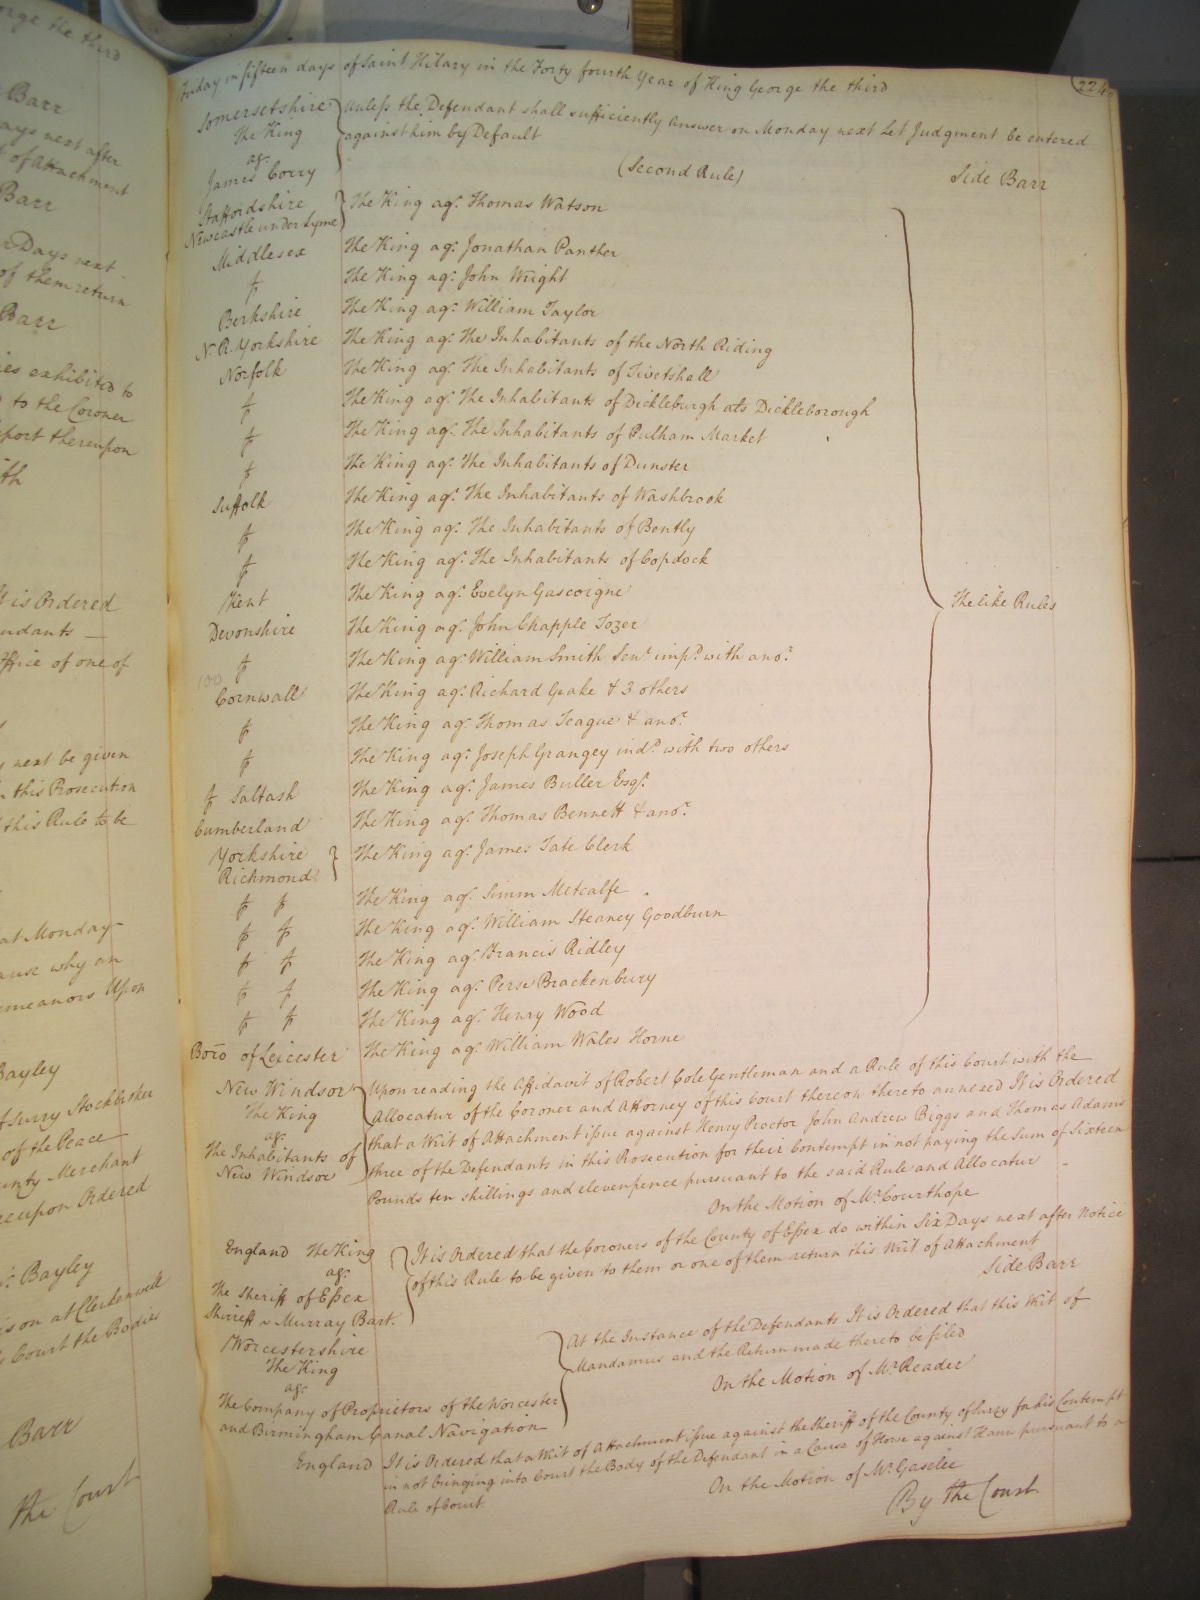 orge the third
Barr
ays next after
t of Attachment
Barr
Days next
of them return
Barr
ies exhibited to
to the Coroner
port thereupon
ith
t is Ordered
endants —
ffice of one of
next be given
this Prosecution
this Rule to be
at Monday
ause why an
emeanors Upon
Bayley
Surry Stockbroker
of the Peace
unty Merchant
reupon Ordered
Bayley
is on at Clerkenwell
Court the Bodies
Barr
the Court
Friday in fifteen days of Saint Hilary in the Forty fourth Year of King George the third
224
Somersetshire
The King
agt.
James Corry
Unless the Defendant shall sufficiently Answer on Monday next Let Judgment be entered
against him by Default
(Second Rule)
Side Barr
Staffordshire
Newcastle under Lyme
The King agt. Thomas Watson
Middlesex The King agt. Jonathan Panther
f The King agt. John Wright
Berkshire The King agt. William Taylor
N. R. Yorkshire The King agt. The Inhabitants of the North Riding
Norfolk The King agt. The Inhabitants of Tivetshall
f The King agt. The Inhabitants of Dickleburgh ats Dickleborough
f The King agt. The Inhabitants of Pulham Market
f The King agt. The Inhabitants of Dunster
Suffolk The King agt. The Inhabitants of Washbrook
f The King agt. The Inhabitants of Bently
f The King agt. The Inhabitants of Copdock
Kent The King agt. Evelyn Gascoigne
The like Rules
Devonshire The King agt. John Chapple Tozer
f The King agt. William Smith Senr. impd. with anor.
100
Cornwall The King agt. Richard Grake & 3 others
f The King agt. Thomas Teague & anor.
f The King agt. Joseph Grangey indd. with two others
f Saltash The King agt. James Buller Esqr.
Cumberland The King agt. Thomas Bennett & anor.
Yorkshire
Richmond
The King agt. James Tate Clerk
f f The King agt. Simm Metcalfe
f f The King agt. William Steaney Goodburn
f f The King agt. Francis Ridley
f f The King agt. Perse Brackenbury
f f The King agt. Henry Wood
Boro of Leicester The King agt. William Wales Horne
New Windsor
The King
agt.
The Inhabitants of
New Windsor
Upon reading the Affidavit of Robert Cole Gentleman and a Rule of this Court with the
Allocatur of the Coroner and Attorney of this Court thereon thereto annexed It is Ordered
that a Writ of Attachment issue against Henry Proctor John Andrew Biggs and Thomas Adams
three of the Defendants in this Prosecution for their Contempt in not paying the Sum of Sixteen
Pounds ten shillings and elevenpence pursuant to the said Rule and Allocatur
On the Motion of Mr. Courthope
England The King
agt.
The Sheriff of Essex
Shirreff v Murray Bart.
It is Ordered that the Coroners of the County of Essex do within Six Days next after Notice
of this Rule to be given to them or one of them return this Writ of Attachment
Side Barr
Worcestershire
The King
agt.
The Company of Proprietors of the Worcester
and Birmingham Canal Navigation
At the Instance of the Defendants It is Ordered that this Writ of
Mandamus and the Return made thereto be filed
On the Motion of Mr. Reader
England It is Ordered that a Writ of Attachment issue against the Sheriff of the County of Surry for his Contempt
in not bringing into Court the Body of the Defendant in a Cause of Horse against Hann pursuant to a
Rule of Court
On the Motion of Mr. Gaselee
By the Court